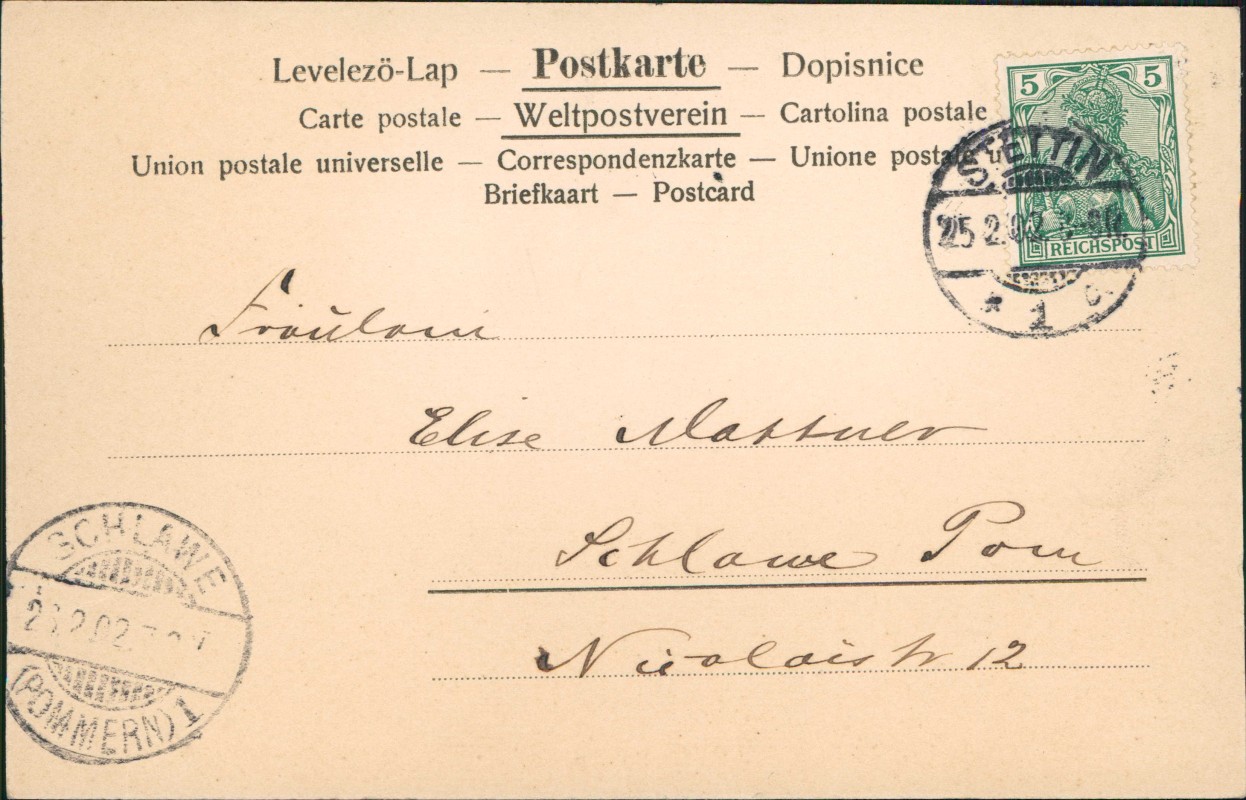 Levelezö-Lap — Postkarte — Dopisnice
Carte postale — Weltpostverein — Cartolina postale
Union postale universelle — Correspondenzkarte — Unione postale u
Briefkaart — Postcard
5 5
REICHSPOST
STETTIN
25.2.02
* 1 c.
Fräulein
Elise Mattner
Schlawe Pom
Nicolaistr 12
SCHLAWE
2.02
(POMMERN) 1